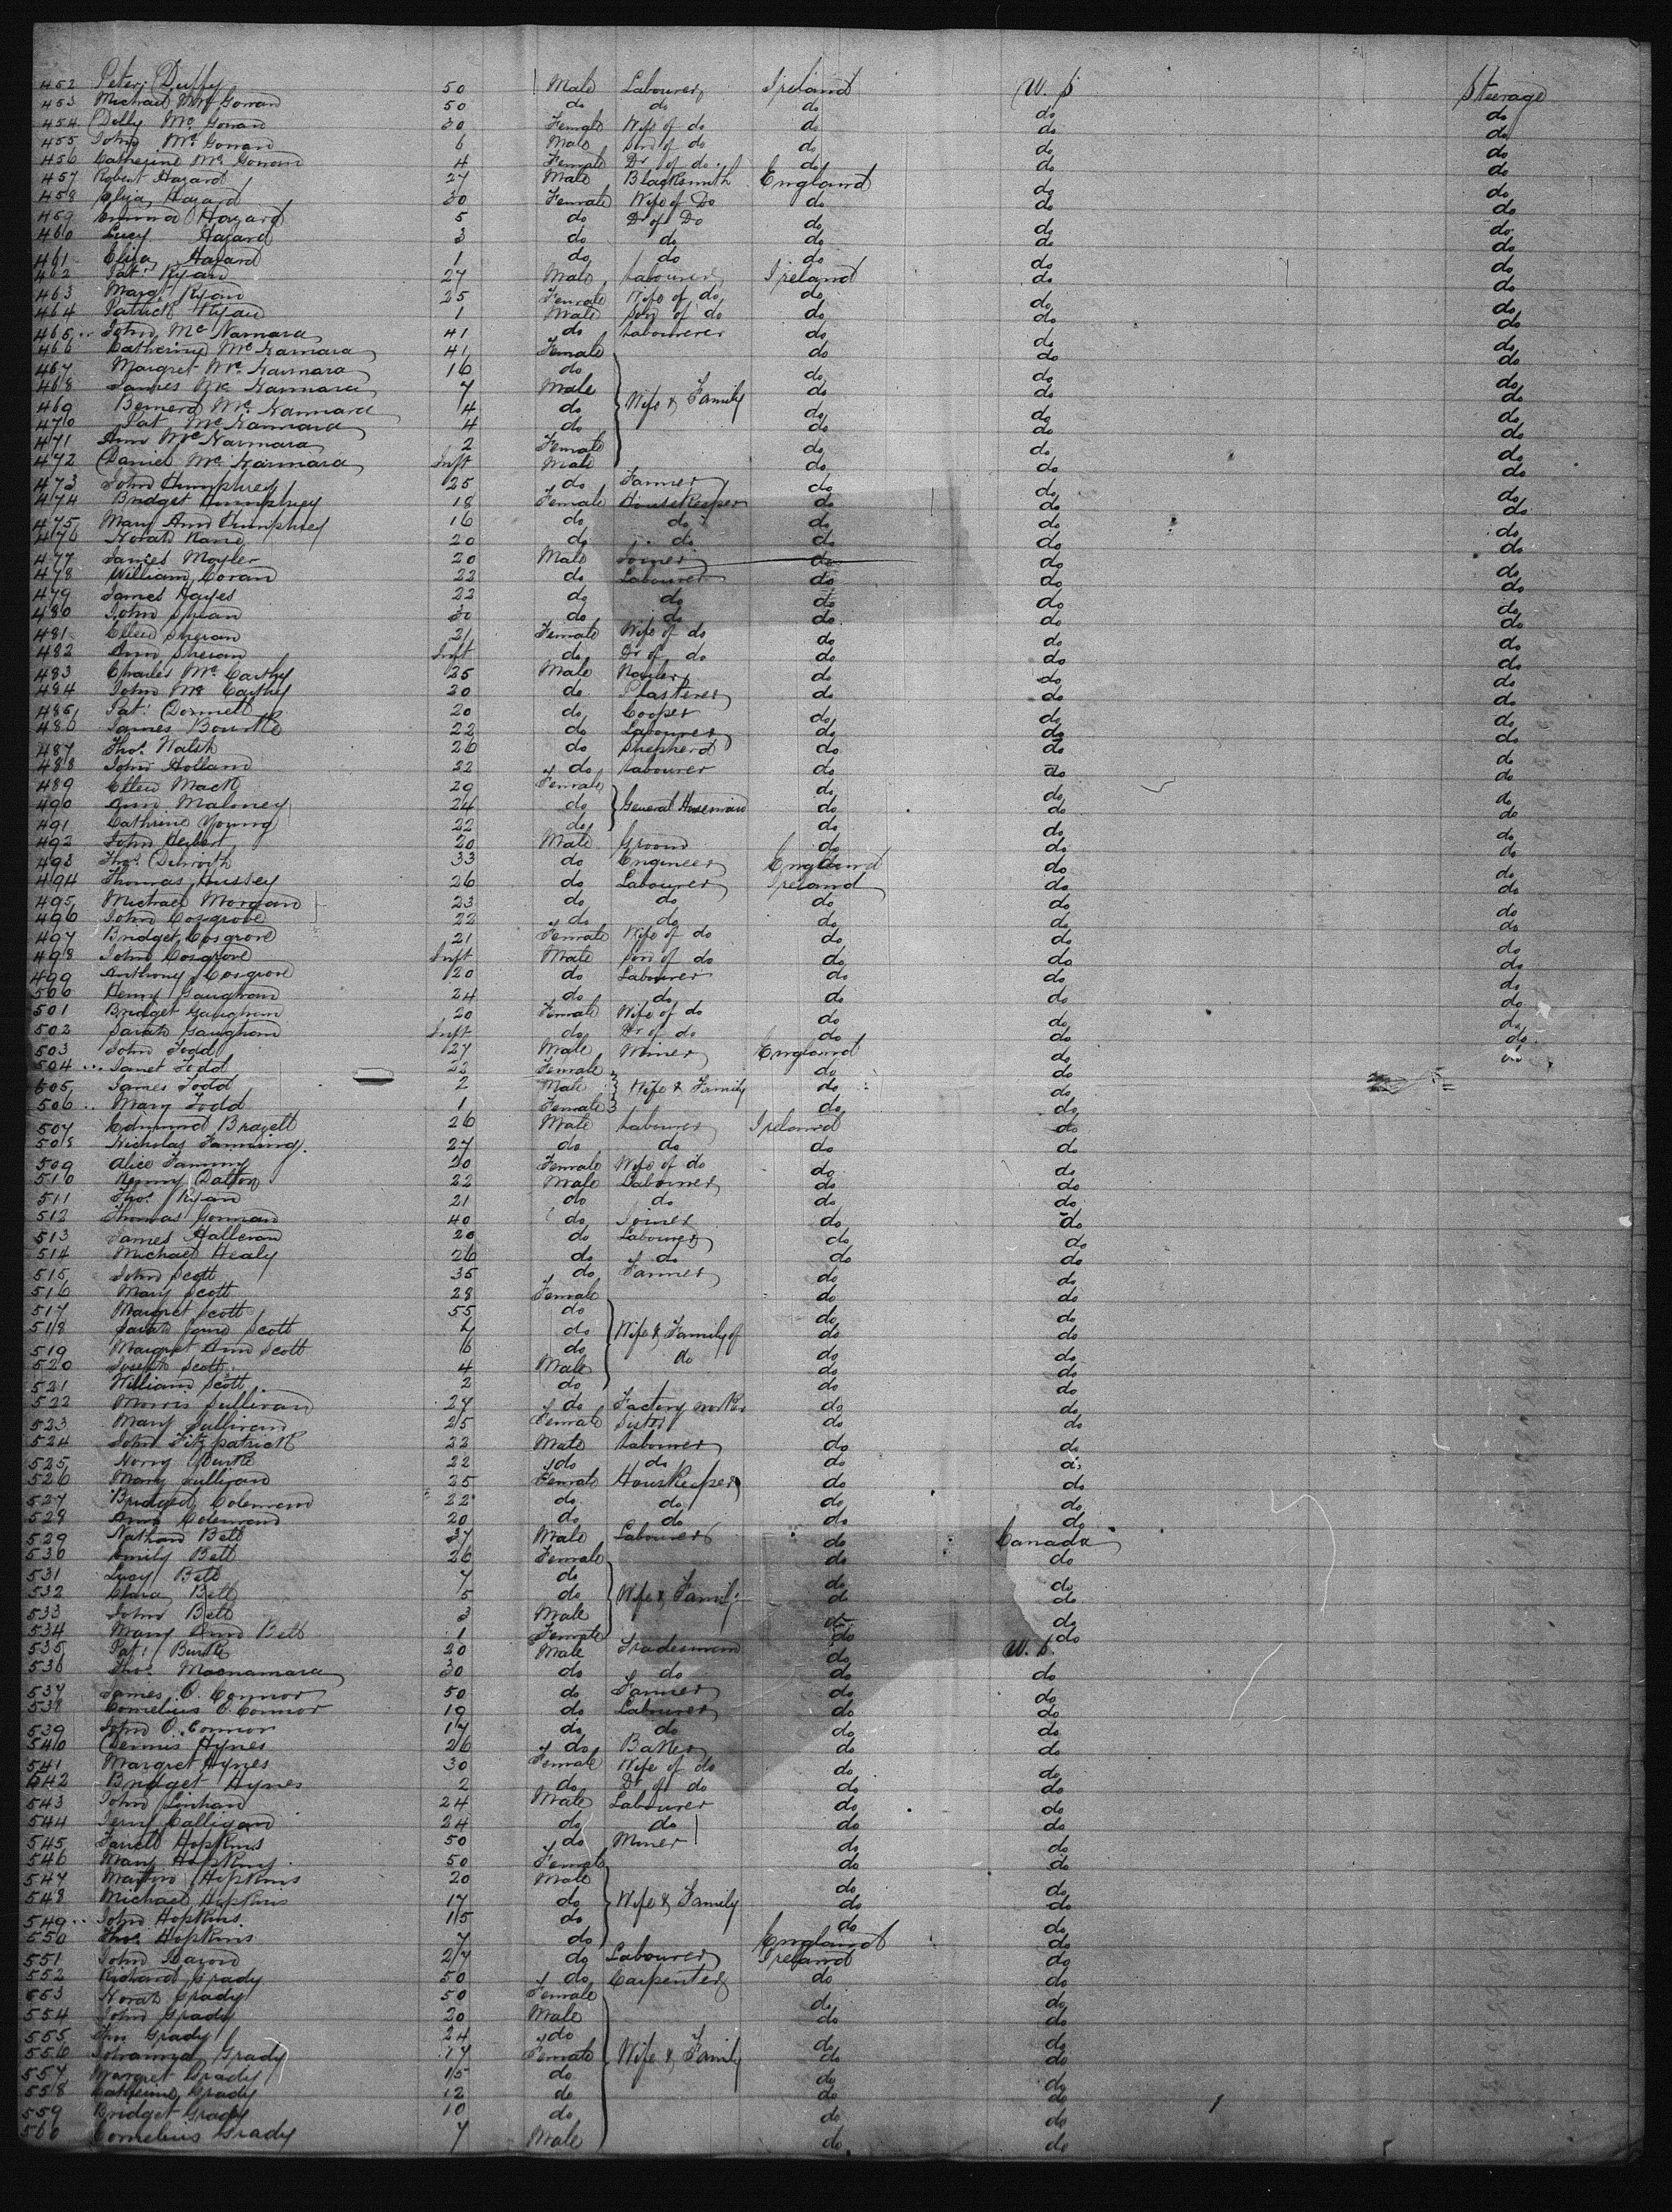 452 Peter Duffy 50 Male Labourer Ireland U.S Steerage
453 Michael Mc Gowan 50 do do do do do
454 Dolly Mc Gowan 30 Female Wife of do do do do
455 John Mc Gowan 6 Male Son of do do do do
456 Catherine Mc Gowan 4 Female Dr of do do do do
457 Robert Hazard 27 Male Blacksmith England do do
458 Eliza Hazard 30 Female Wife of Do do do do
459 Emma Hazard 5 do Dr of Do do do do
460 Lucy Hazard 3 do do do do do
461 Eliza Hazard 1 do do do do do
462 Pat. Ryan 27 Male Labourer Ireland do do
463 Margt Ryan 25 Female Wife of do do do do
464 Patrick Ryan 1 Male Son of do do do do
465 John Mc Namara 41 do Labourer do do do
466 Catherine Mc Namara 41 Female do do do
467 Margret Mc Namara 16 do do do do
468 James Mc Namara 7 Male Wife & Family do do do
469 Bernard Mc Namara 4 do do do do
470 Pat Mc Namara 4 do do do do
471 Ann Mc Namara 2 Female do do do
472 Daniel Mc Namara Inft Male do do do
473 John Humphrey 25 do Farmer do do do
474 Bridget Humphrey 18 Female HouseKeeper do do do
475 Mary Ann Humphrey 16 do do do do do
476 Norah Kane 20 do do do do do
477 James Moyler 20 Male Joiner do do do
478 William Coran 22 do Labourer do do do
479 James Hayes 22 do do do do do
480 John Shean 30 do do do do do
481 Ellen Shean 21 Female Wife of do do do do
482 Ann Shean Inft do Dr of do do do do
483 Charles Mc Carthy 25 Male do do do
484 John Mc Carthy 20 do Plasterer do do do
485 Pat. Donnell 20 do Cooper do do do
486 James Bourke 22 do Labourer do do do
487 Thos. Walsh 26 do Shepherd do do do
488 John Holland 22 do Labourer do do do
489 Ellen Mack 29 Female do do do
490 Ann Maloney 24 do General do do do
491 Cathrine Young 22 do do do do
492 John Herbert 20 Male Groom do do do
493 Thos. 33 do Engineer England do do
494 Thomas Hussey 26 do Labourer Ireland do do
495 Michael Morgan 23 do do do do do
496 John Cosgrove 22 do do do do do
497 Bridget Cosgrove 21 Female Wife of do do do do
498 John Cosgrove Inft Male Son of do do do do
499 Anthony Cosgrove 20 do Labourer do do do
500 Henry Gaughan 24 do do do do do
501 Bridget Gaughan 20 Female Wife of do do do do
502 Sarah Gaughan Inft do Dr of do do do do
503 John Todd 27 Male Miner England do do
504 Janet Todd 22 Female do do
505 James Todd 2 Male Wife & Family do do
506 Mary Todd 1 Female do do
507 Edmund Brazell 26 Male Labourer Ireland do
508 Nicholas Fanning 27 do do do do
509 Alice Fanning 20 Female Wife of do do do
510 Dalton 22 Male Labourer do do
511 Thos. Ryan 21 do do do do
512 Thomas Gorman 40 do Joiner do do
513 James Halleran 20 do Labourer do do
514 Michael Healy 26 do do do do
515 John Scott 35 do Farmer do do
516 Mary Scott 28 Female do do
517 Margret Scott 55 do do do
518 Sarah Jane Scott 7 do Wife & Family of do do
519 Margret Ann Scott 6 do do do do
520 Joseph Scott 4 Male do do
521 William Scott 2 do do do
522 Morris Sullivan 27 do Factory worker do do
523 Mary Sullivan 25 Female Sister do do
524 John Fitzpatrick 22 Male Labourer do do
525 Burke 22 do do do do
526 Mary Sullivan 25 Female HousKeeper do do
527 Bridget Colemand 22 do do do do
528 Colemand 20 do do do do
529 Nathan Bell 37 Male Labourer do Canada
530 Emily Bell 26 Female do do
531 Lucy Bell 7 do do do
532 Clara Bell 5 do Wife & Family do do
533 John Bell 3 Male do do
534 Mary Ann Bell 1 Female do do
535 Pat. Burke 20 Male Tradesman do U.S.
536 Thos. Macnamara 30 do do do do
537 James O. Connor 50 do Farmer do do
538 Cornelius O. Connor 19 do Labourer do do
539 John O. Connor 17 do do do do
540 Dennis Hynes 26 do Baker do do
541 Margret Hynes 30 Female Wife of do do do
542 Bridget Hynes 2 do Dr of do do do
543 John Linhan 24 Male Labourer do do
544 Jerry Calligan 24 do do do do
545 Farrell Hopkins 50 do Miner do do
546 Mary Hopkins 50 Female do do
547 Martin Hopkins 20 Male do do
548 Michael Hopkins 17 do Wife & Family do do
549 John Hopkins 15 do do do
550 Thos. Hopkins 7 do England do
551 John 27 do Labourer Ireland do
552 Richard Grady 50 do Carpenter do do
553 Norah Grady 50 Female do do
554 John Grady 20 Male do do
555 Grady 24 do do do
556 Johannah Grady 17 Female Wife & Family do do
557 Margret Grady 15 do do do
558 Catherine Grady 12 do do do
559 Bridget Grady 10 do do do
560 Cornelius Grady 7 Male do do